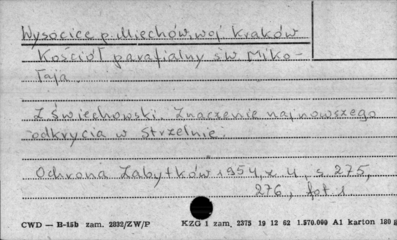 Wysocice p. Miechów, woj. Kraków
Kościół parafialny św. Miko-
łaja.
Z. Świechowski. Znaczenie najnowszego
odkrycia w Strzelnie.
Ochrona Zabytków 1954, z. 4, s. 275,
276, fot 1
CWD — H-15b zam. 2802/ZW/P KZG 1 zam. 2375 19 12 62 1.570.000 A1 karton 180 g